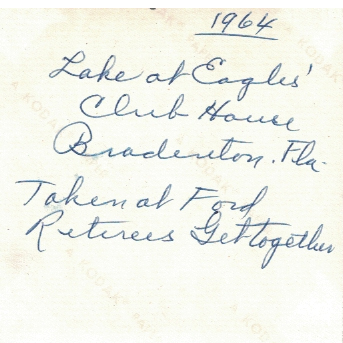 1964
Lake at Eagles'
Club House
Bradenton. Fla.
Taken at Ford
Retirees Get together